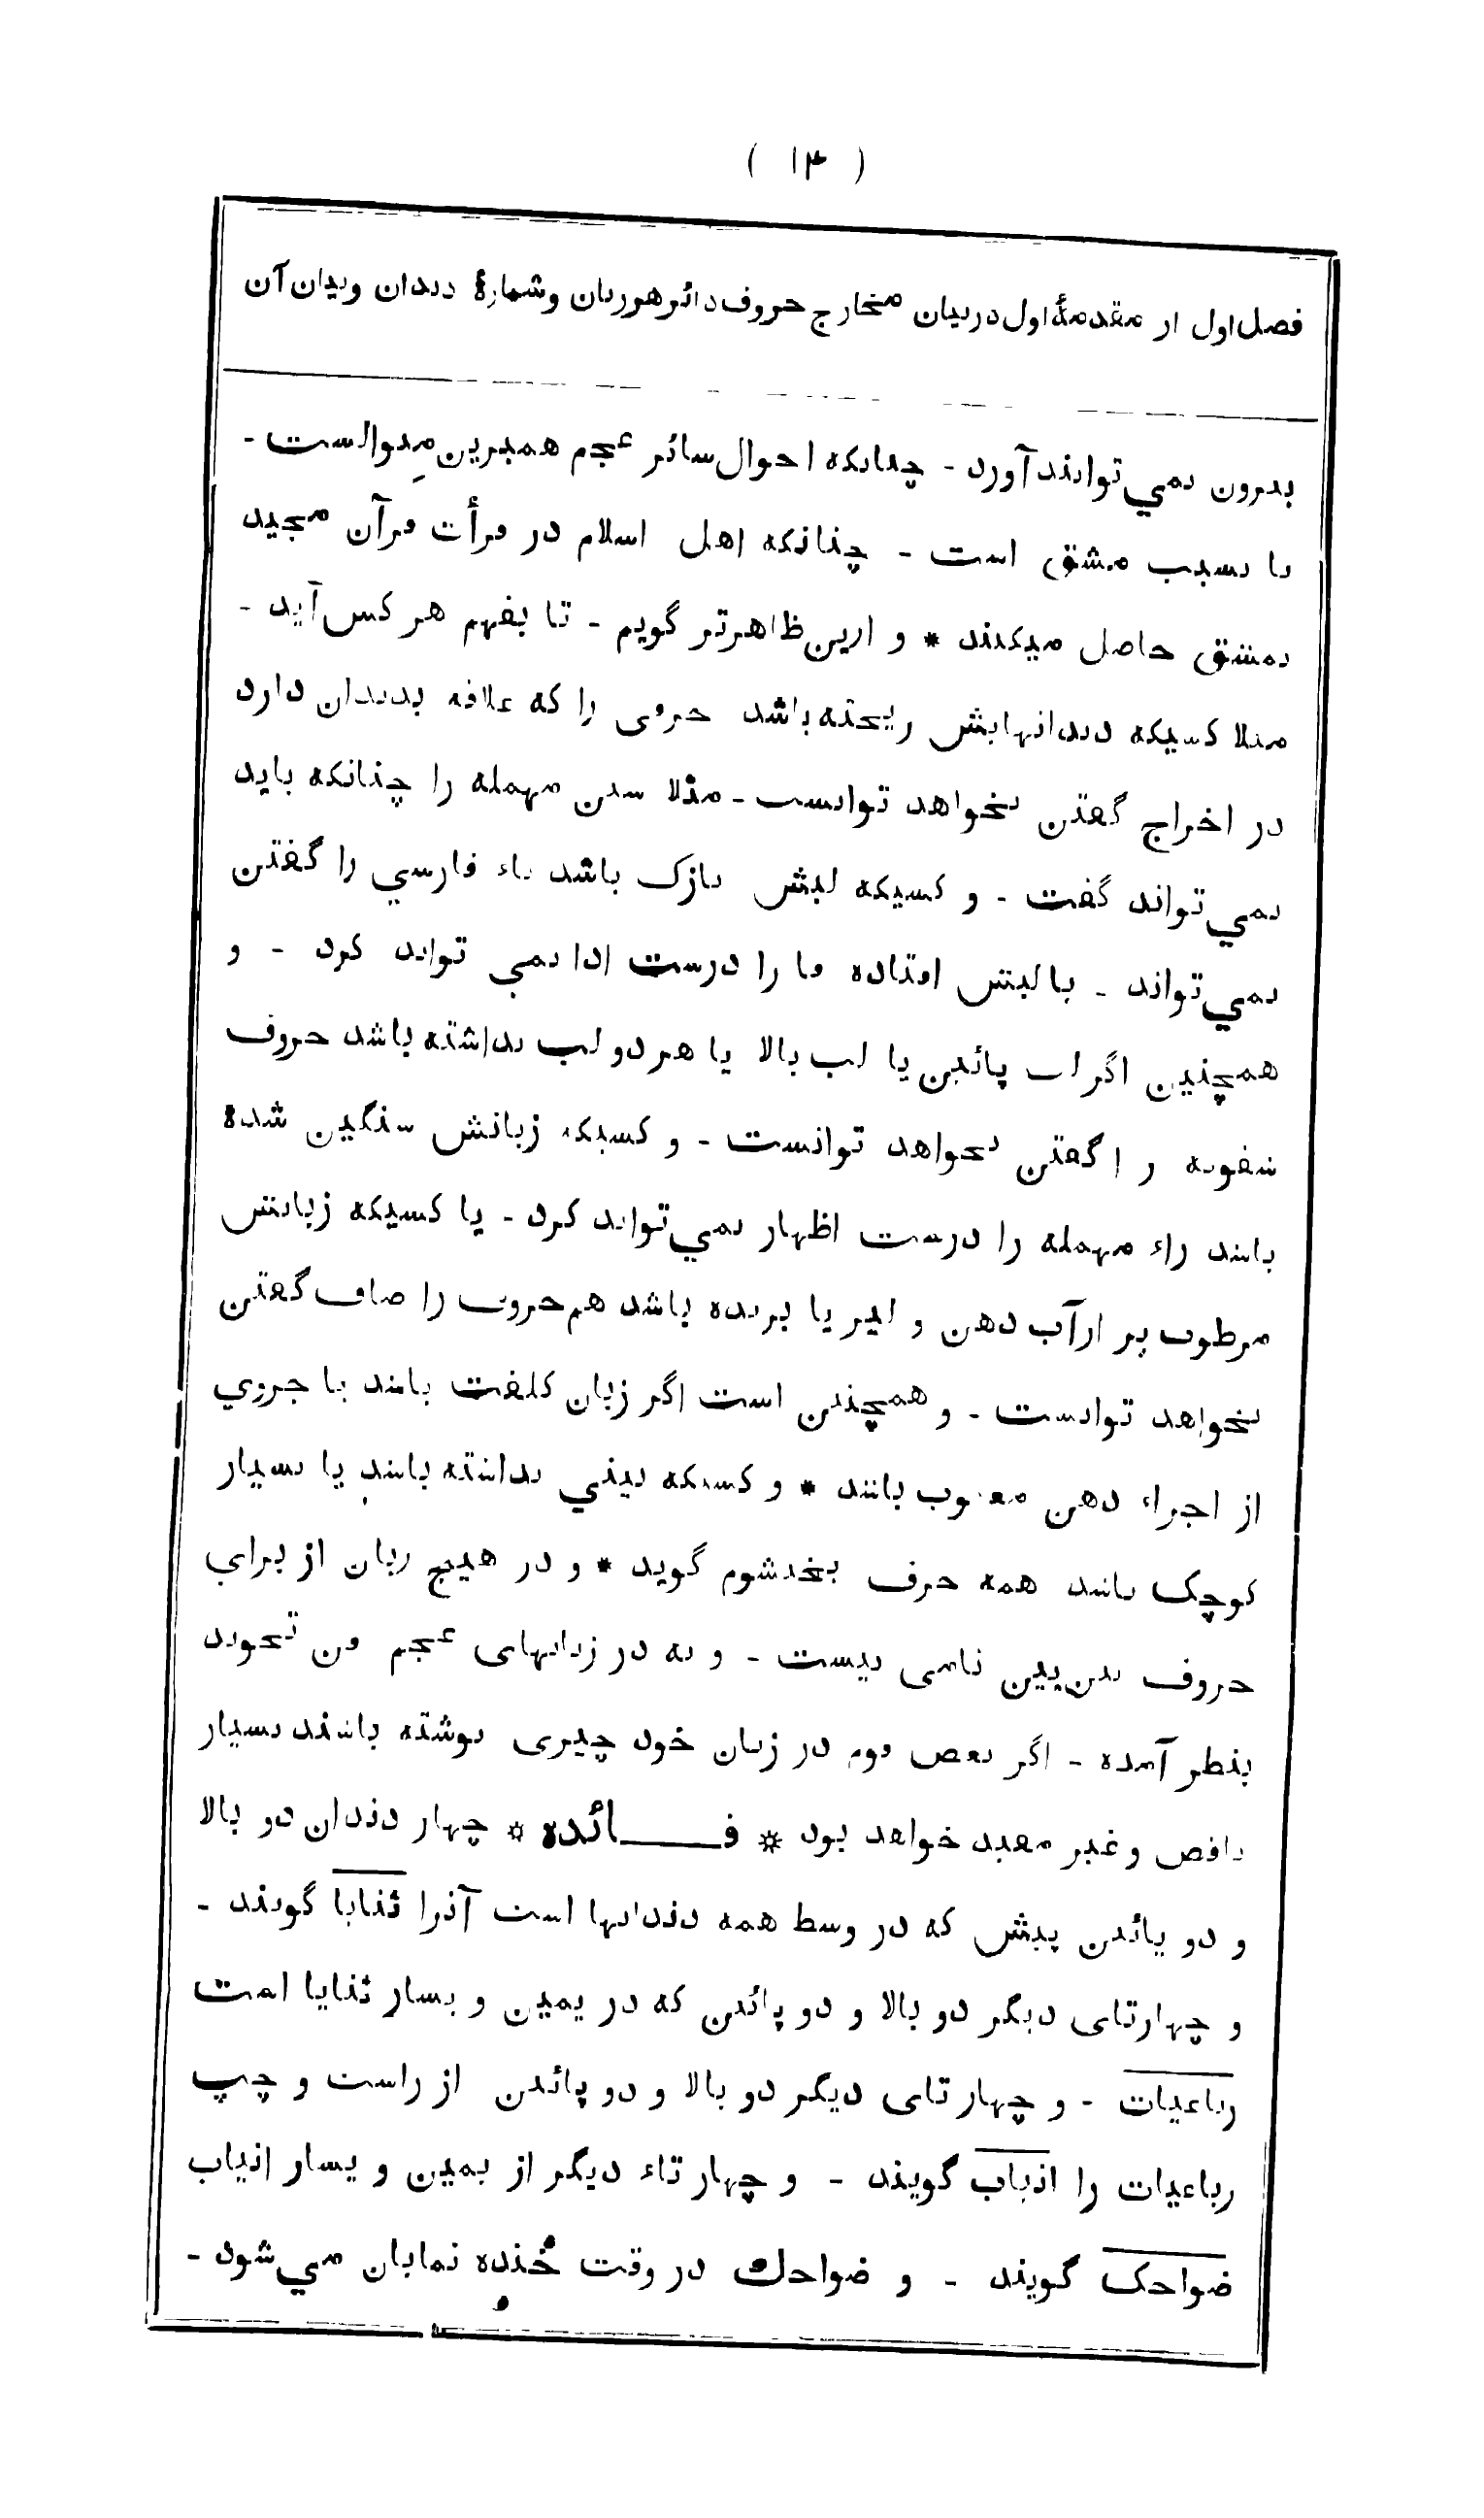 ( ۱۳ )
فصل اول از مقدمهٔ اول دربیان مخارج حروف دائر هر زبان و شمارهٔ دندان و بیان آن
بدرون نمي توانند آورد - چنانکه احوال سائر عجم همبرین منوالست -
یا بسبب مشق است - چنانکه اهل اسلام در قرأت قرآن مجید
بمشق حاصل میکنند * و ازین ظاهرتر گویم - تا بفهم هر کس آید -
مثلا کسیکه دندانهایش ریخته باشد حروفی را که علاقه بدندان دارد
در اخراج گفتن نخواهد توانست - مثلا سین مهمله را چنانکه باید
نمي تواند گفت - و کسیکه لبش نازک باشد باء فارسي را گفتن
نمي تواند - یا لبش افتاده فا را درست ادا نمی تواند کرد - و
همچنین اگر لب پائین یا لب بالا یا هر دو لب نداشته باشد حروف
شفویه را گفتن نخواهد توانست - و کسیکه زبانش سنگین شده
باشد راء مهمله را درست اظهار نمي تواند کرد - یا کسیکه زبانش
مرطوب پر از آب دهن و لبر یا بریده باشد هم حروف را صاف گفتن
نخواهد توانست - و همچنین است اگر زبان کلفت باشد یا جزوي
از اجزاء دهن معیوب باشد * و کسیکه بیني نداشته باشد یا بسیار
کوچک باشد همه حرف بخیشوم گوید * و در هیچ زبان از برای
حروف بین بین نامی نیست - و نه در زبانهای عجم فن تجوید
بنظر آمده - اگر بعض قوم در زبان خود چیزی نوشته باشند بسیار
ناقص و غیر مفید خواهد بود * فــــائده * چهار دندان دو بالا
و دو پائین پیش که در وسط همه دندانها است آنرا ثنایا گویند -
و چهارتای دیگر دو بالا و دو پائین که در یمین و یسار ثنایا است
رباعیات - و چهار تای دیگر دو بالا و دو پائین از راست و چپ
رباعیات را انیاب گویند - و چهار تاء دیگر از یمین و یسار انیاب
ضواحک گویند - و ضواحک در وقت خنده نمایان مي شود -